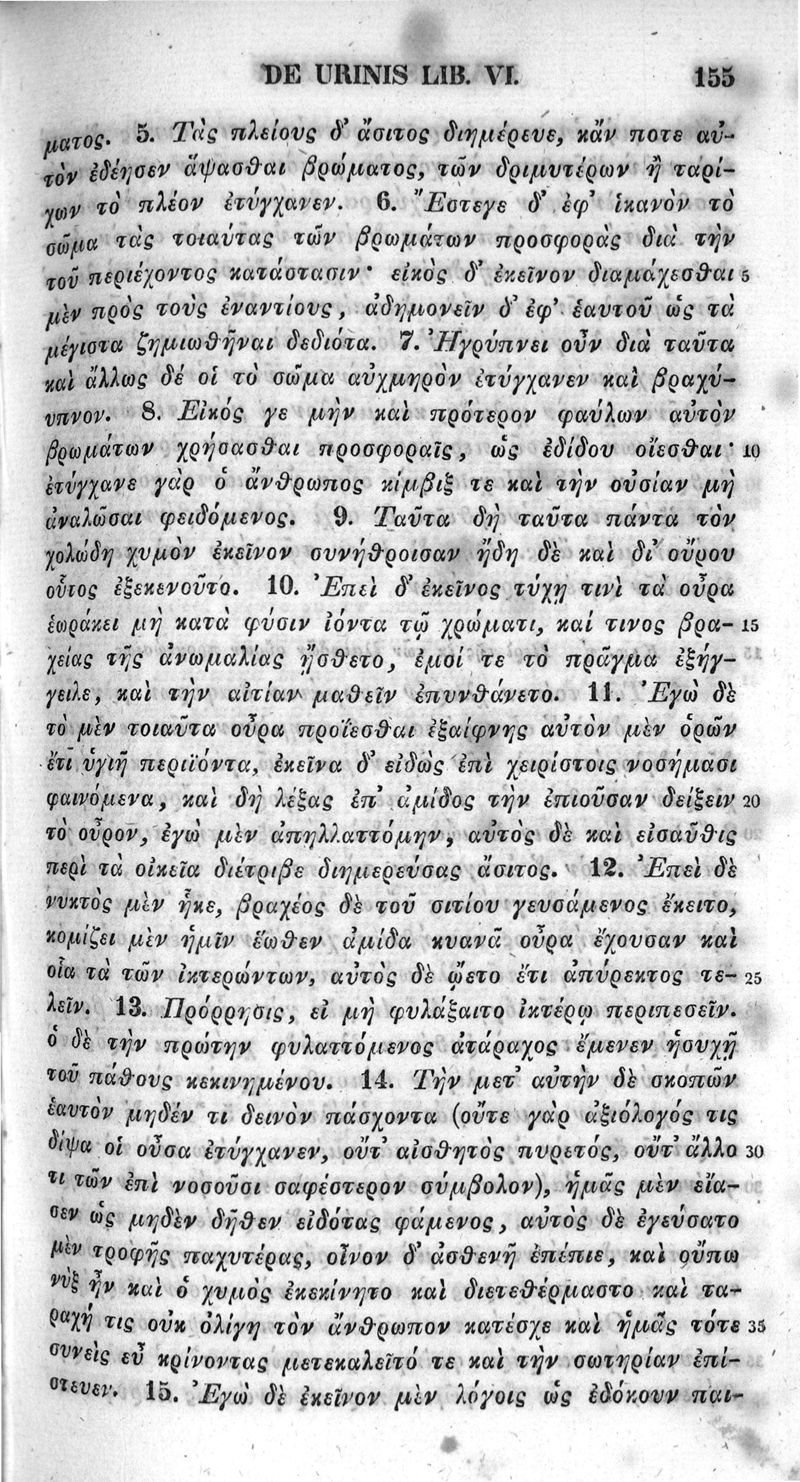 DE URINIS LIB. VI. 155
ματος. 5. Τὰς πλείους δ' ἄσιτος διημέρευε, κἄν ποτε αὐ-
τὸν ἐδέησεν ἅψασθαι βρώματος, τῶν δριμυτέρων ἢ ταρί-
χων τὸ πλέον ἐτύγχανεν. 6. Ἔστεγε δ' ἐφ' ἱκανὸν τὸ
σῶμα τὰς τοιαύτας τῶν βρωμάτων προσφορὰς διὰ τὴν
τοῦ περιέχοντος κατάστασιν· εἰκὸς δ' ἐκεῖνον διαμάχεσθαι 5
μὲν πρὸς τοὺς ἐναντίους, ἀδημονεῖν δ' ἐφ' ἑαυτοῦ ὡς τὰ
μέγιστα ζημιωθῆναι δεδιότα. 7. Ἠγρύπνει οὖν διὰ ταῦτα
καὶ ἄλλως δέ οἱ τὸ σῶμα αὐχμηρὸν ἐτύγχανεν καὶ βραχύ-
υπνον. 8. Εἰκός γε μὴν καὶ πρότερον φαύλων αὐτὸν
βρωμάτων χρήσασθαι προσφοραῖς, ὡς ἐδίδου οἴεσθαι· 10
ἐτύγχανε γὰρ ὁ ἄνθρωπος κίμβιξ τε καὶ τὴν οὐσίαν μὴ
ἀναλῶσαι φειδόμενος. 9. Ταῦτα δὴ ταῦτα πάντα τὸν
χολώδη χυμὸν ἐκεῖνον συνήθροισαν ἤδη δὲ καὶ δι' οὔρου
οὗτος ἐξεκενοῦτο. 10. Ἐπεὶ δ' ἐκεῖνος τύχῃ τινὶ τὰ οὖρα
ἑωράκει μὴ κατὰ φύσιν ἰόντα τῷ χρώματι, καί τινος βρα- 15
χείας τῆς ἀνωμαλίας ᾔσθετο, ἐμοί τε τὸ πρᾶγμα ἐξήγ-
γειλε, καὶ τὴν αἰτίαν μαθεῖν ἐπυνθάνετο. 11. Ἐγὼ δὲ
τὸ μὲν τοιαῦτα οὖρα προΐεσθαι ἐξαίφνης αὐτὸν μὲν ὁρῶν
ἔτι ὑγιῆ περιϊόντα, ἐκεῖνα δ' εἰδὼς ἐπὶ χειρίστοις νοσήμασι
φαινόμενα, καὶ δὴ λέξας ἐπ' ἀμίδος τὴν ἐπιοῦσαν δείξειν 20
τὸ οὖρον, ἐγὼ μὲν ἀπηλλαττόμην, αὐτὸς δὲ καὶ εἰσαῦθις
περὶ τὰ οἰκεῖα διέτριβε διημερεύσας ἄσιτος. 12. Ἐπεὶ δὲ
νυκτὸς μὲν ἧκε, βραχέος δὲ τοῦ σιτίου γευσάμενος ἔκειτο,
κομίζει μὲν ἡμῖν ἕωθεν ἀμίδα κυανᾶ οὖρα ἔχουσαν καὶ
οἷα τὰ τῶν ἰκτερώντων, αὐτὸς δὲ ᾤετο ἔτι ἀπύρεκτος τε- 25
λεῖν. 13. Πρόρρησις, εἰ μὴ φυλάξαιτο ἰκτέρῳ περιπεσεῖν.
ὁ δὲ τὴν πρώτην φυλαττόμενος ἀτάραχος ἔμενεν ἡσυχῇ
τοῦ πάθους κεκινημένου. 14. Τὴν μετ' αὐτὴν δὲ σκοπῶν
ἑαυτὸν μηδέν τι δεινὸν πάσχοντα (οὔτε γὰρ ἀξιόλογός τις
δίψα οἱ οὖσα ἐτύγχανεν, οὔτ' αἰσθητὸς πυρετός, οὔτ' ἄλλο 30
τι τῶν ἐπὶ νοσοῦσι σαφέστερον σύμβολον), ἡμᾶς μὲν εἴα-
σεν ὡς μηδὲν δῆθεν εἰδότας φάμενος, αὐτὸς δὲ ἐγεύσατο
μὲν τροφῆς παχυτέρας, οἶνον δ' ἀσθενῆ ἐπέπιε, καὶ οὔπω
νὺξ ἦν καὶ ὁ χυμὸς ἐκεκίνητο καὶ διετεθέρμαστο καὶ τα-
ραχή τις οὐκ ὀλίγη τὸν ἄνθρωπον κατέσχε καὶ ἡμᾶς τότε 35
συνεὶς εὖ κρίνοντας μετεκαλεῖτό τε καὶ τὴν σωτηρίαν ἐπί-
στευεν. 15. Ἐγὼ δὲ ἐκεῖνον μὲν λόγοις ὡς ἐδόκουν παι-